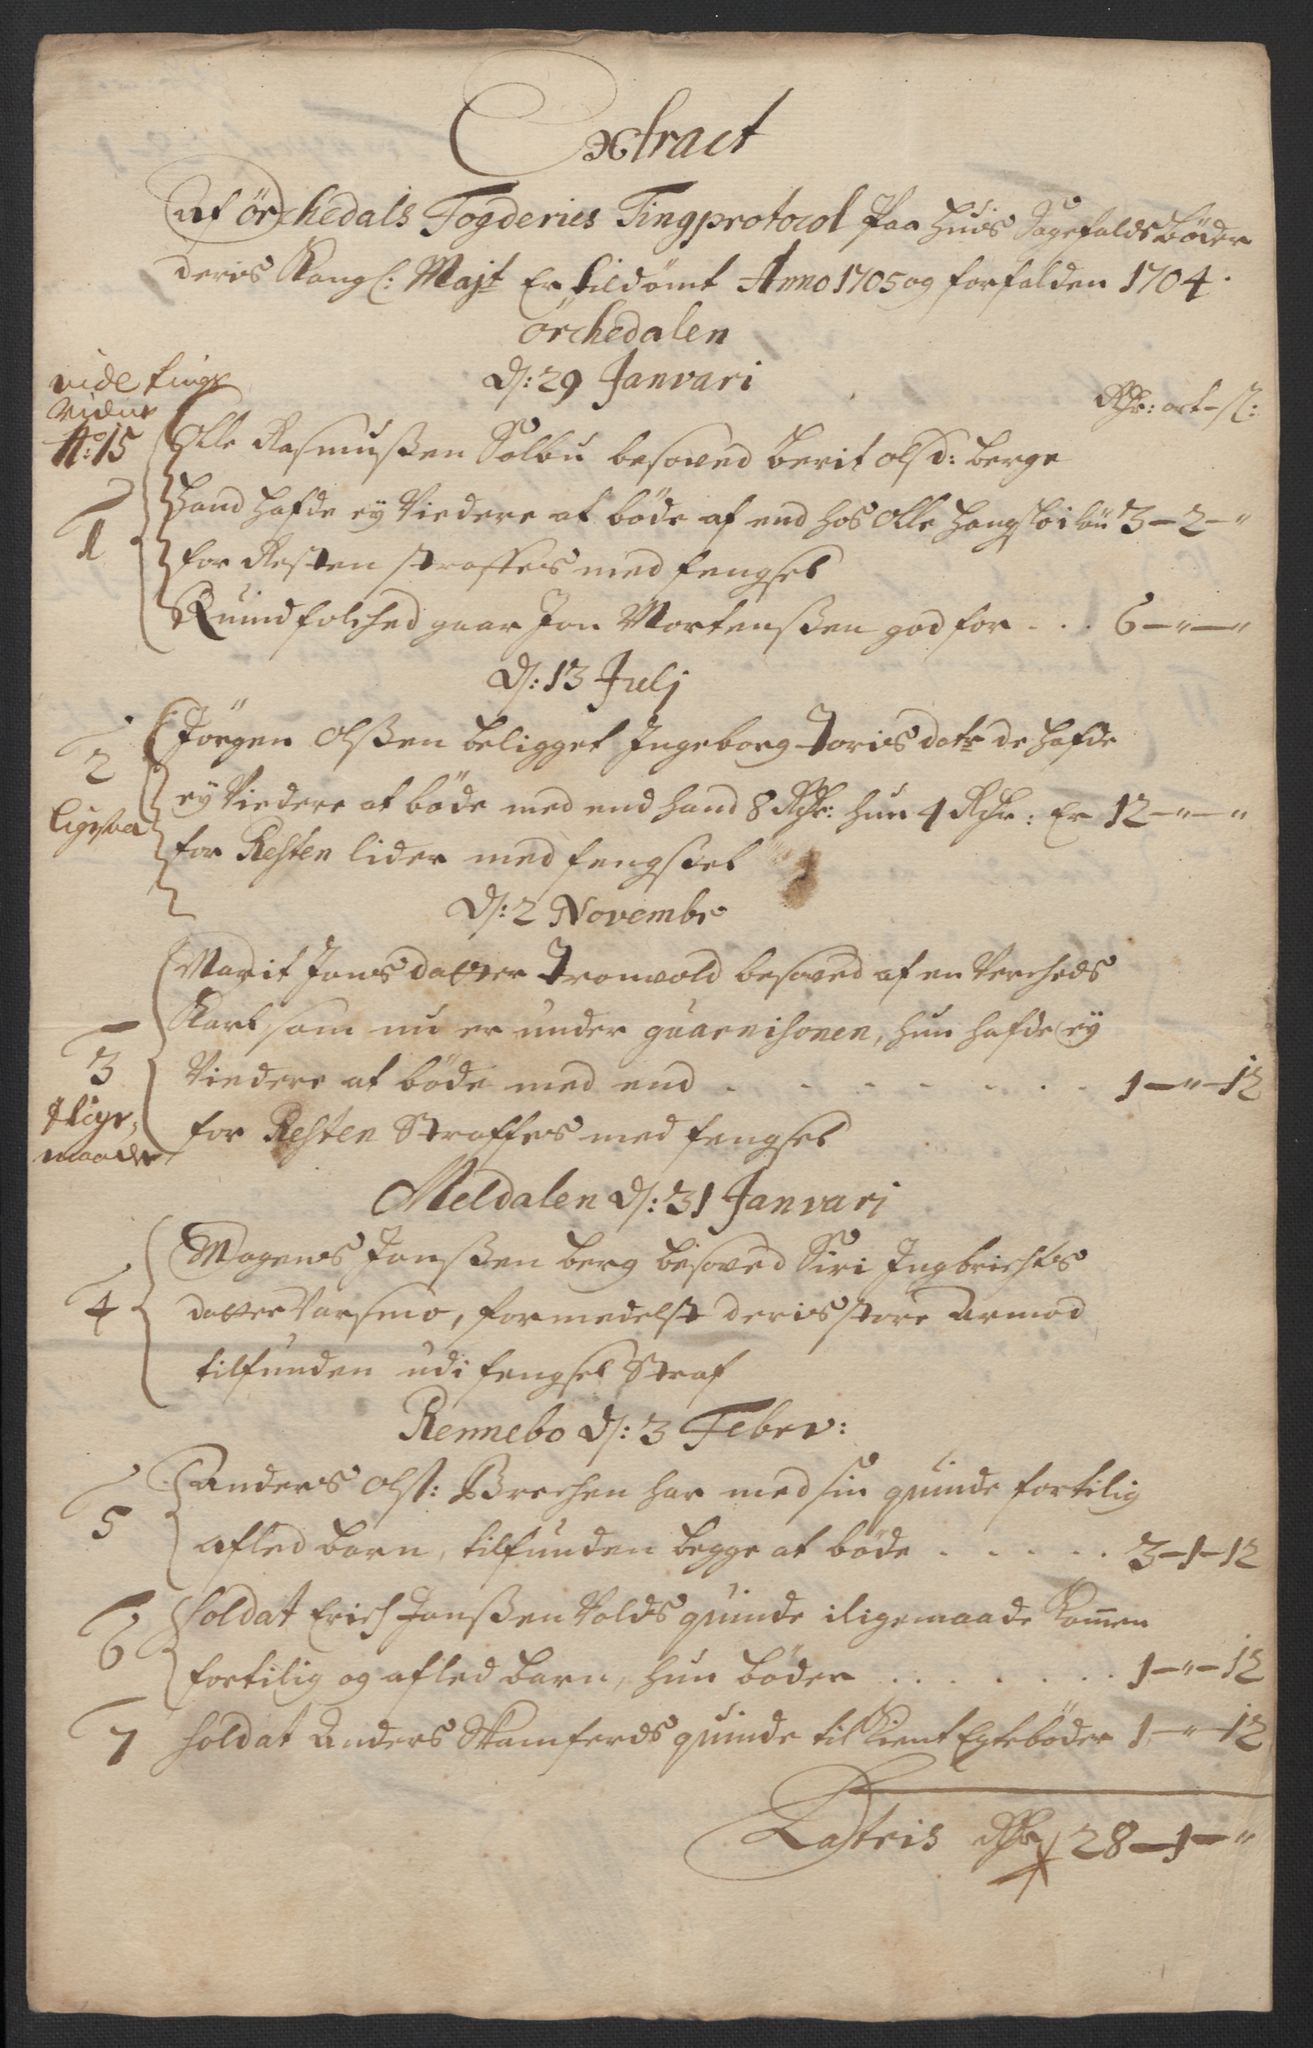 Extract
Af örchedals Fogderies Tingprotocol Paa huis Sagefaldsbøder
deris Kongl: Majt Er tildömt Anno 1705 og forfalden 1704.
örchedalen
d: 29 Janvari
vide tings
Vidne
No: 15
Rdr: ort - s:
1
Olle Rasmusßen Solbu besoved Berit olsd: Berge
hand hafde ej Viedere at böde af end hos Olle 3-2-"
for Resten straffes med fengsel
Quindfolched gaar Jon Mortensßen god for . . . 6-"-"
d: 13 Julj
2
ligesaa
Jörgen olsßen beligget Ingeborg Joris datr de hafde
ej Viedere at böde med end hand 8 Rdr: hun 4 Rdr: Er 12-"-"
for Resten lider med fengsel
d: 2 Novembr
3
i lige
maade
Marit Jons datter Tronvold besoved af en Verheds
Karl som nu er under guarnisonen, hun hafde ej
Viedere at böde med end . . . . . . . 1-"-12
for Resten Straffes med fengsel
Meldalen d: 31 Janvarj
4
Mogens Jonsßen berg besoved Siri Ingbrichts
datter Varsmo, formedelst deris store Armod
tilfunden udi fengsel Straf
Rennebo d: 3 Febrv:
5
Anders Olss: Brechen har med sin quinde fortilig
afled barn, tilfunden begge at böde . . . . . 3-1-12
6
Soldat Erich Jonsßen Volds quinde iligemaade Kommen
fortilig og afled barn, hun böder . . . . . . . 1-"-12
7
Soldat Anders Stamferds quinde til Kient Egtebøder 1-"-12
Lateris Rdr 28-1-"